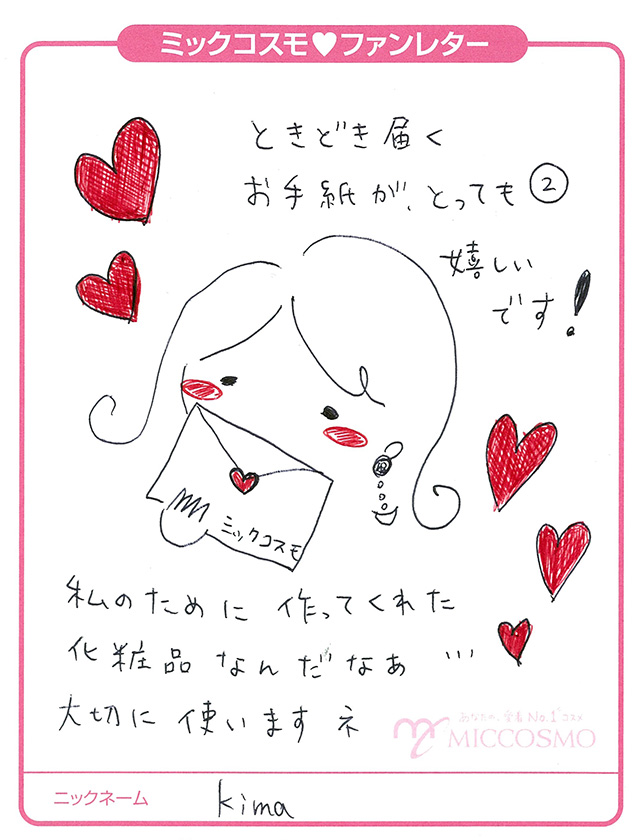 ミックコスモ♥ファンレター
ときどき届く
お手紙が、とっても②
嬉しい
です!
ミックコスモ
私のために 作ってくれた
化粧品 なんだなぁ …
大切に 使います ネ
あなたの、愛着No.1コスメ
MICCOSMO
ニックネーム kima